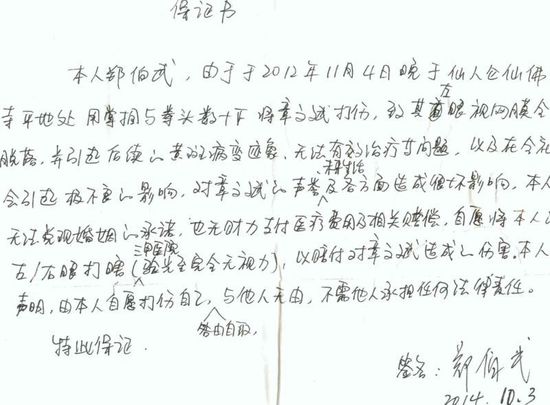 保证书
本人郑伯武,由于于2012年11月4日晚于仙人仑仙佛
寺平地处用掌掴与拳头数十下将章文斌打伤,致其左眼视网膜全
脱落,并引起后续的黄斑病变迹象,无法有效治疗等问题,以及在今社
会引起极不良的影响,对章文斌的声誉及各方面造成很坏影响,本人
无法兑现婚姻的承诺,也无财力支付医疗费用及相关赔偿,自愿将本人的
左/右眼打瞎(至完全无视力),以赔付对章文斌造成的伤害.本人
声明,由本人自愿打伤自己,咎由自取,与他人无由,不需他人承担任何法律责任.
特此保证.
签名:郑伯武
2014.10.3